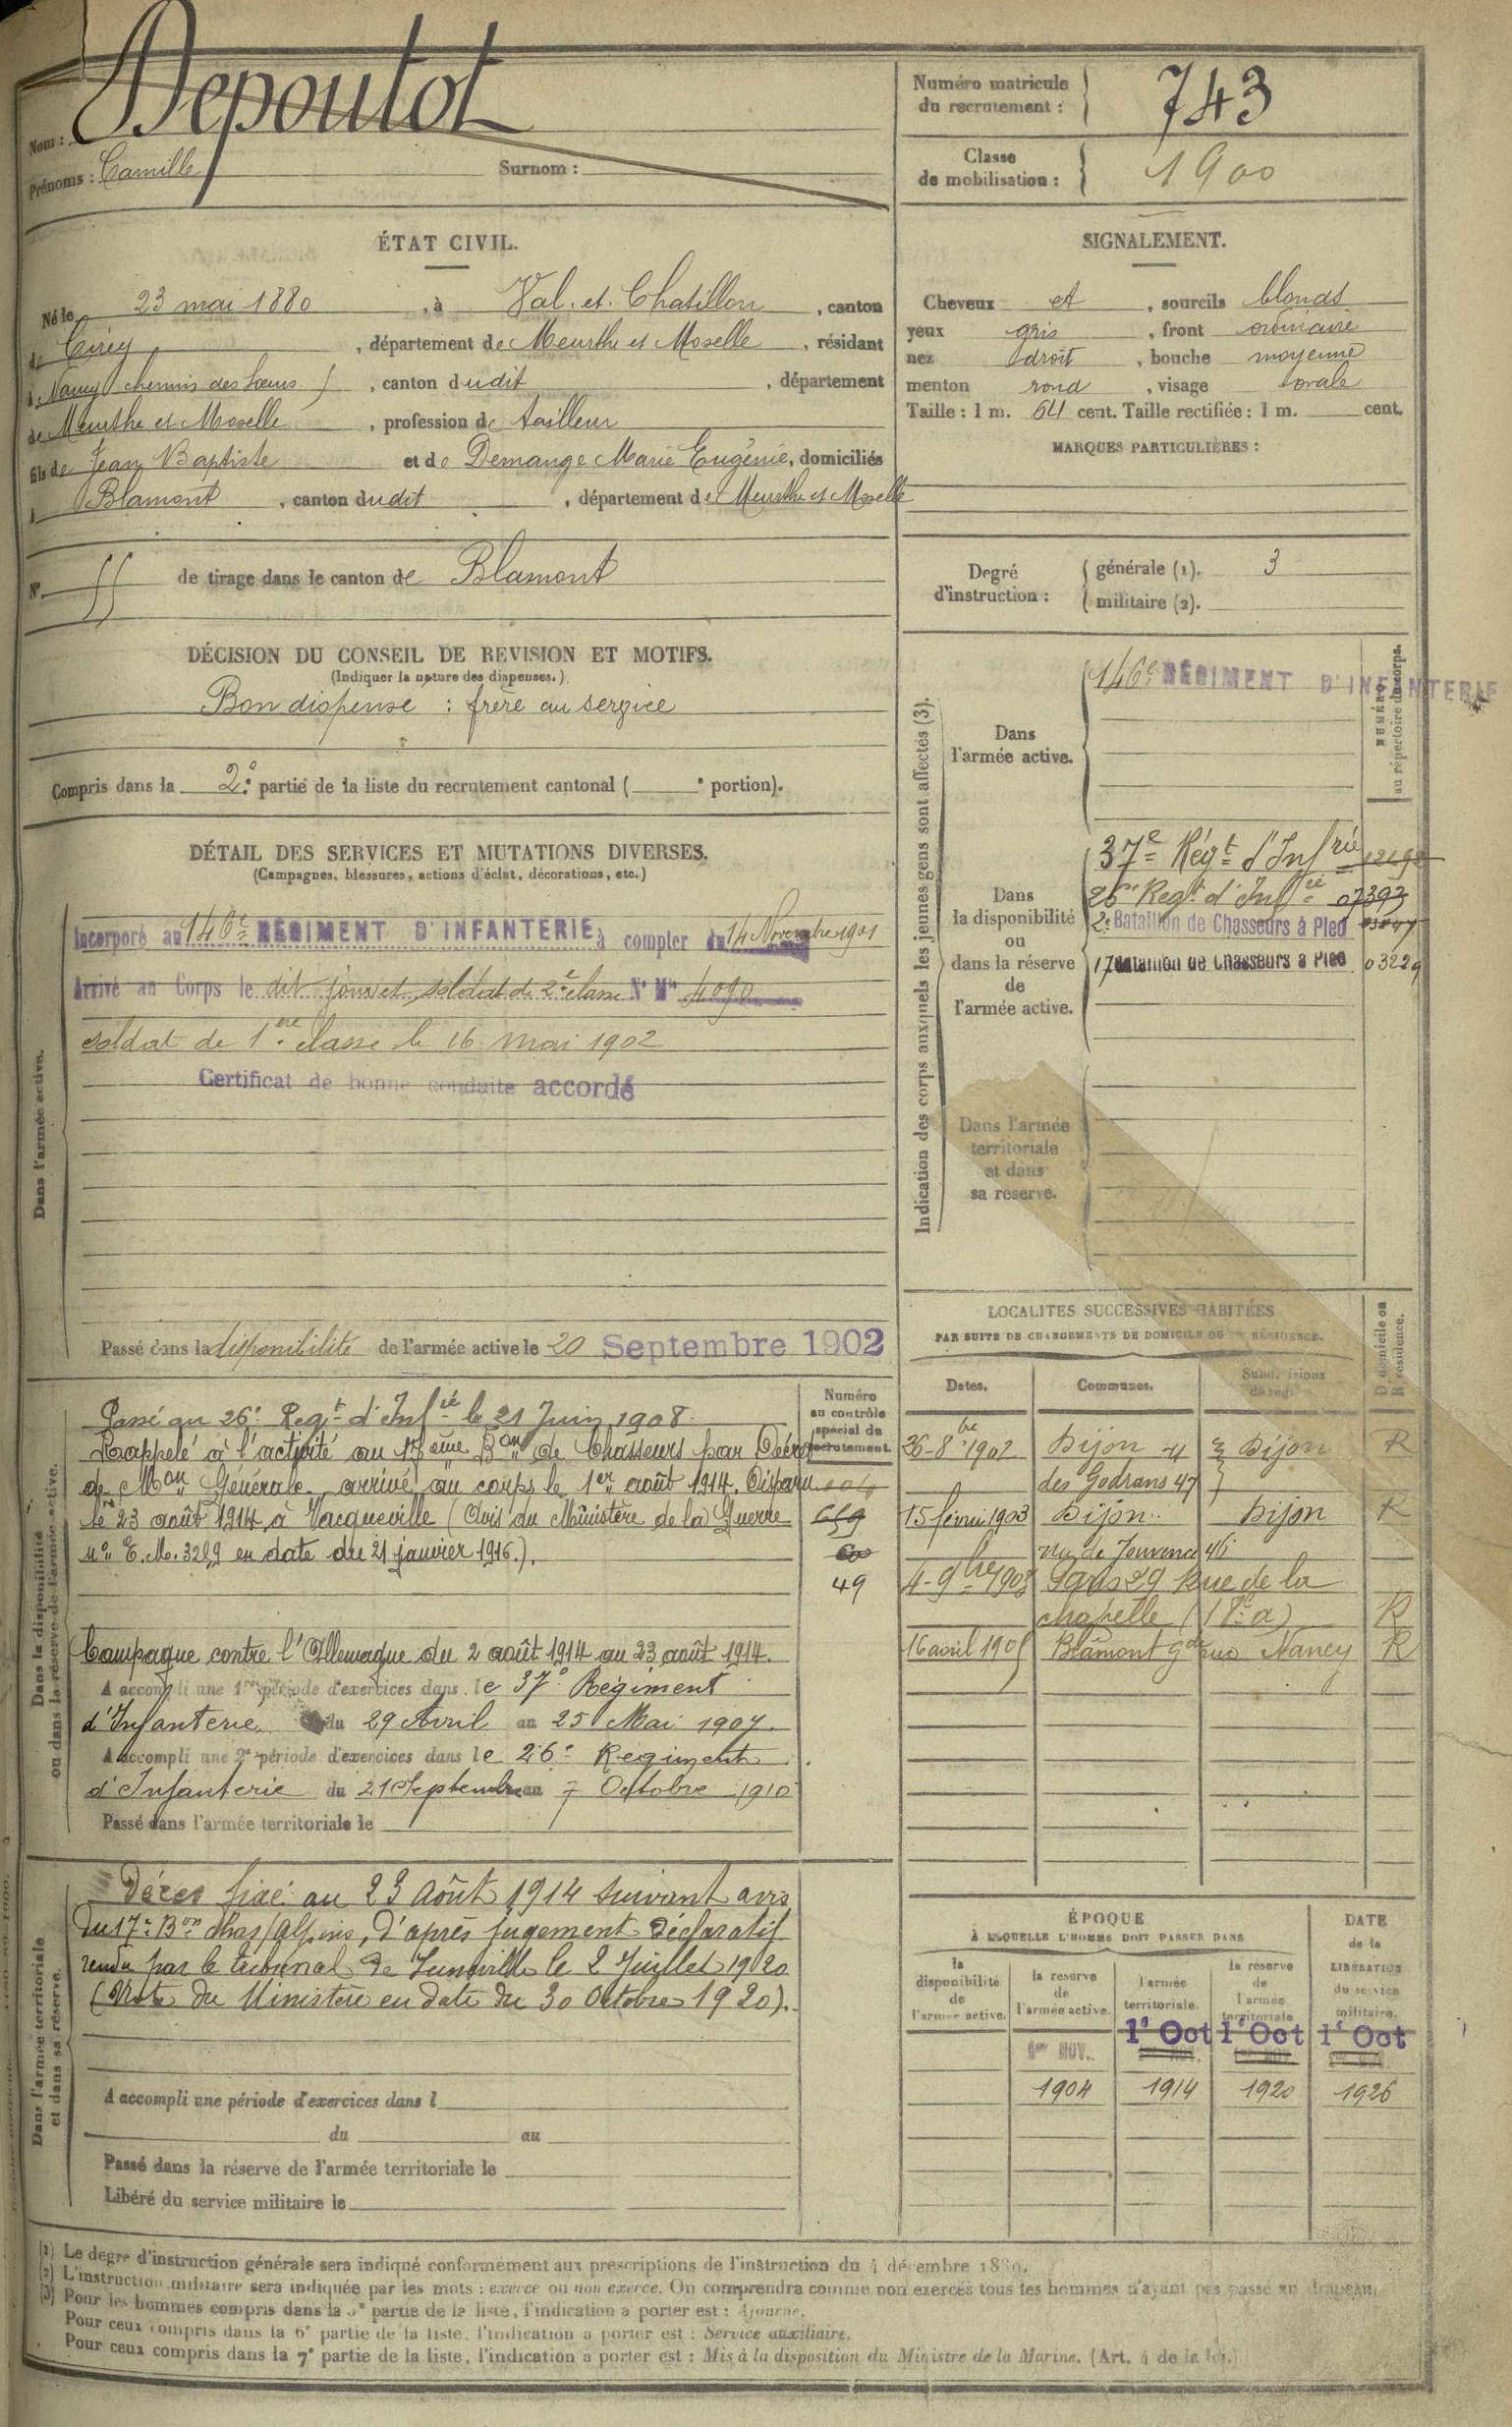 Nom : Depoutot
Prénoms : Camille Surnom :
Numéro matricule du recrutement : 743
Classe de mobilisation : 1900
ÉTAT CIVIL.
Né le 23 mai 1880, à Val-et-Chatillon, canton
de Cirey, département de Meurthe et Moselle, résidant
à Nancy (chemin des), canton dudit, département
de Meurthe et Moselle, profession de tailleur
fils de Jean Baptiste et de Demange Marie Eugénie, domiciliés
à Blamont, canton dudit, département de Meurthe et Moselle
N° de tirage dans le canton de Blamont
DÉCISION DU CONSEIL DE REVISION ET MOTIFS.
(Indiquer la nature des dispenses.)
Bon dispense : frère au service
Compris dans la 2e partie de la liste du recrutement cantonal ( e portion).
DÉTAIL DES SERVICES ET MUTATIONS DIVERSES.
(Campagnes, blessures, actions d'éclat, décorations, etc.)
Dans l'armée active.
Incorporé au 146e RÉGIMENT D'INFANTERIE à compter du 14 Novembre 1901
Arrivé au Corps le dit jour et soldat de 2e classe N° Mle
soldat de 1ère classe le 16 mai 1902
Certificat de bonne conduite accordé
Passé dans la disponibilité de l'armée active le 20 Septembre 1902
Dans la disponibilité ou dans la réserve de l'armée active.
Numéro au contrôle spécial du recrutement.
Passé au 26e Regt d'Infrie le 21 Juin 1908.
Rappelé à l'activité au 17ème Bon de Chasseurs par Décret
de Mon Générale, arrivé au corps le 1er août 1914. Disparu
le 23 août 1914 à Vacqueville (Avis du Ministère de la Guerre
n° E.M. 3289 en date du 21 janvier 1916.).
49
Campagne contre l'Allemagne du 2 août 1914 au 23 août 1914.
A accompli une 1re période d'exercices dans le 37e Régiment
d'Infanterie du 29 Avril au 25 Mai 1907.
A accompli une 2e période d'exercices dans le 26e Régiment
d'Infanterie du 21 Septembre au 7 Octobre 1910
Passé dans l'armée territoriale le
Dans l'armée territoriale et dans sa réserve.
Décès fixé au 23 Août 1914 suivant avis
du 17e Bon chas/Alpins, d'après jugement déclaratif
rendu par le tribunal de Lunéville le 2 Juillet 1920
(Note du Ministère en date du 30 Octobre 1920).
A accompli une période d'exercices dans l
du au
Passé dans la réserve de l'armée territoriale le
Libéré du service militaire le
SIGNALEMENT.
Cheveux et, sourcils blonds
yeux gris, front ordinaire
nez droit, bouche moyenne
menton rond, visage ovale
Taille : 1 m. 64 cent. Taille rectifiée : 1 m. cent.
MARQUES PARTICULIÈRES :
Degré d'instruction : générale (1). 3
militaire (2).
Indication des corps auxquels les jeunes gens sont affectés (3).
NUMÉRO au répertoire du corps.
Dans l'armée active.
146e RÉGIMENT D'INFANTERIE
Dans la disponibilité ou dans la réserve de l'armée active.
37e Régt d'Infrie
26e Regt d'Infrie 07393
2e Bataillon de Chasseurs à Pied
17 Bataillon de Chasseurs à Pied 03229
Dans l'armée territoriale et dans sa réserve.
LOCALITÉS SUCCESSIVES HABITÉES
PAR SUITE DE CHANGEMENTS DE DOMICILE OU DE RÉSIDENCE.
Dates. Communes. Subdivisions de rég. D. domicile ou R. résidence.
26-8bre 1902 Dijon Dijon R
des Godrans 47
15 février 1903 Dijon Dijon R
rue de Jouvence 46
4-9bre Paris 29 Rue de la
chapelle (18e a) R
16 avril Blâmont Gde rue Nancy R
ÉPOQUE
À LAQUELLE L'HOMME DOIT PASSER DANS
DATE de la LIBÉRATION du service militaire.
la disponibilité de l'armée active. la réserve de l'armée active. l'armée territoriale. la réserve de l'armée territoriale.
1er NOV. 1r Oct 1r Oct 1r Oct
1904 1914 1920 1926
(1) Le degré d'instruction générale sera indiqué conformément aux prescriptions de l'instruction du 4 décembre
(2) L'instruction militaire sera indiquée par les mots : exercé ou non exercé. On comprendra comme non exercés tous les hommes n'ayant pas passé au drapeau.
(3) Pour les hommes compris dans la 5e partie de la liste, l'indication à porter est : Ajourné.
Pour ceux compris dans la 6e partie de la liste, l'indication à porter est : Service auxiliaire.
Pour ceux compris dans la 7e partie de la liste, l'indication à porter est : Mis à la disposition du Ministre de la Marine. (Art. 4 de la loi.)